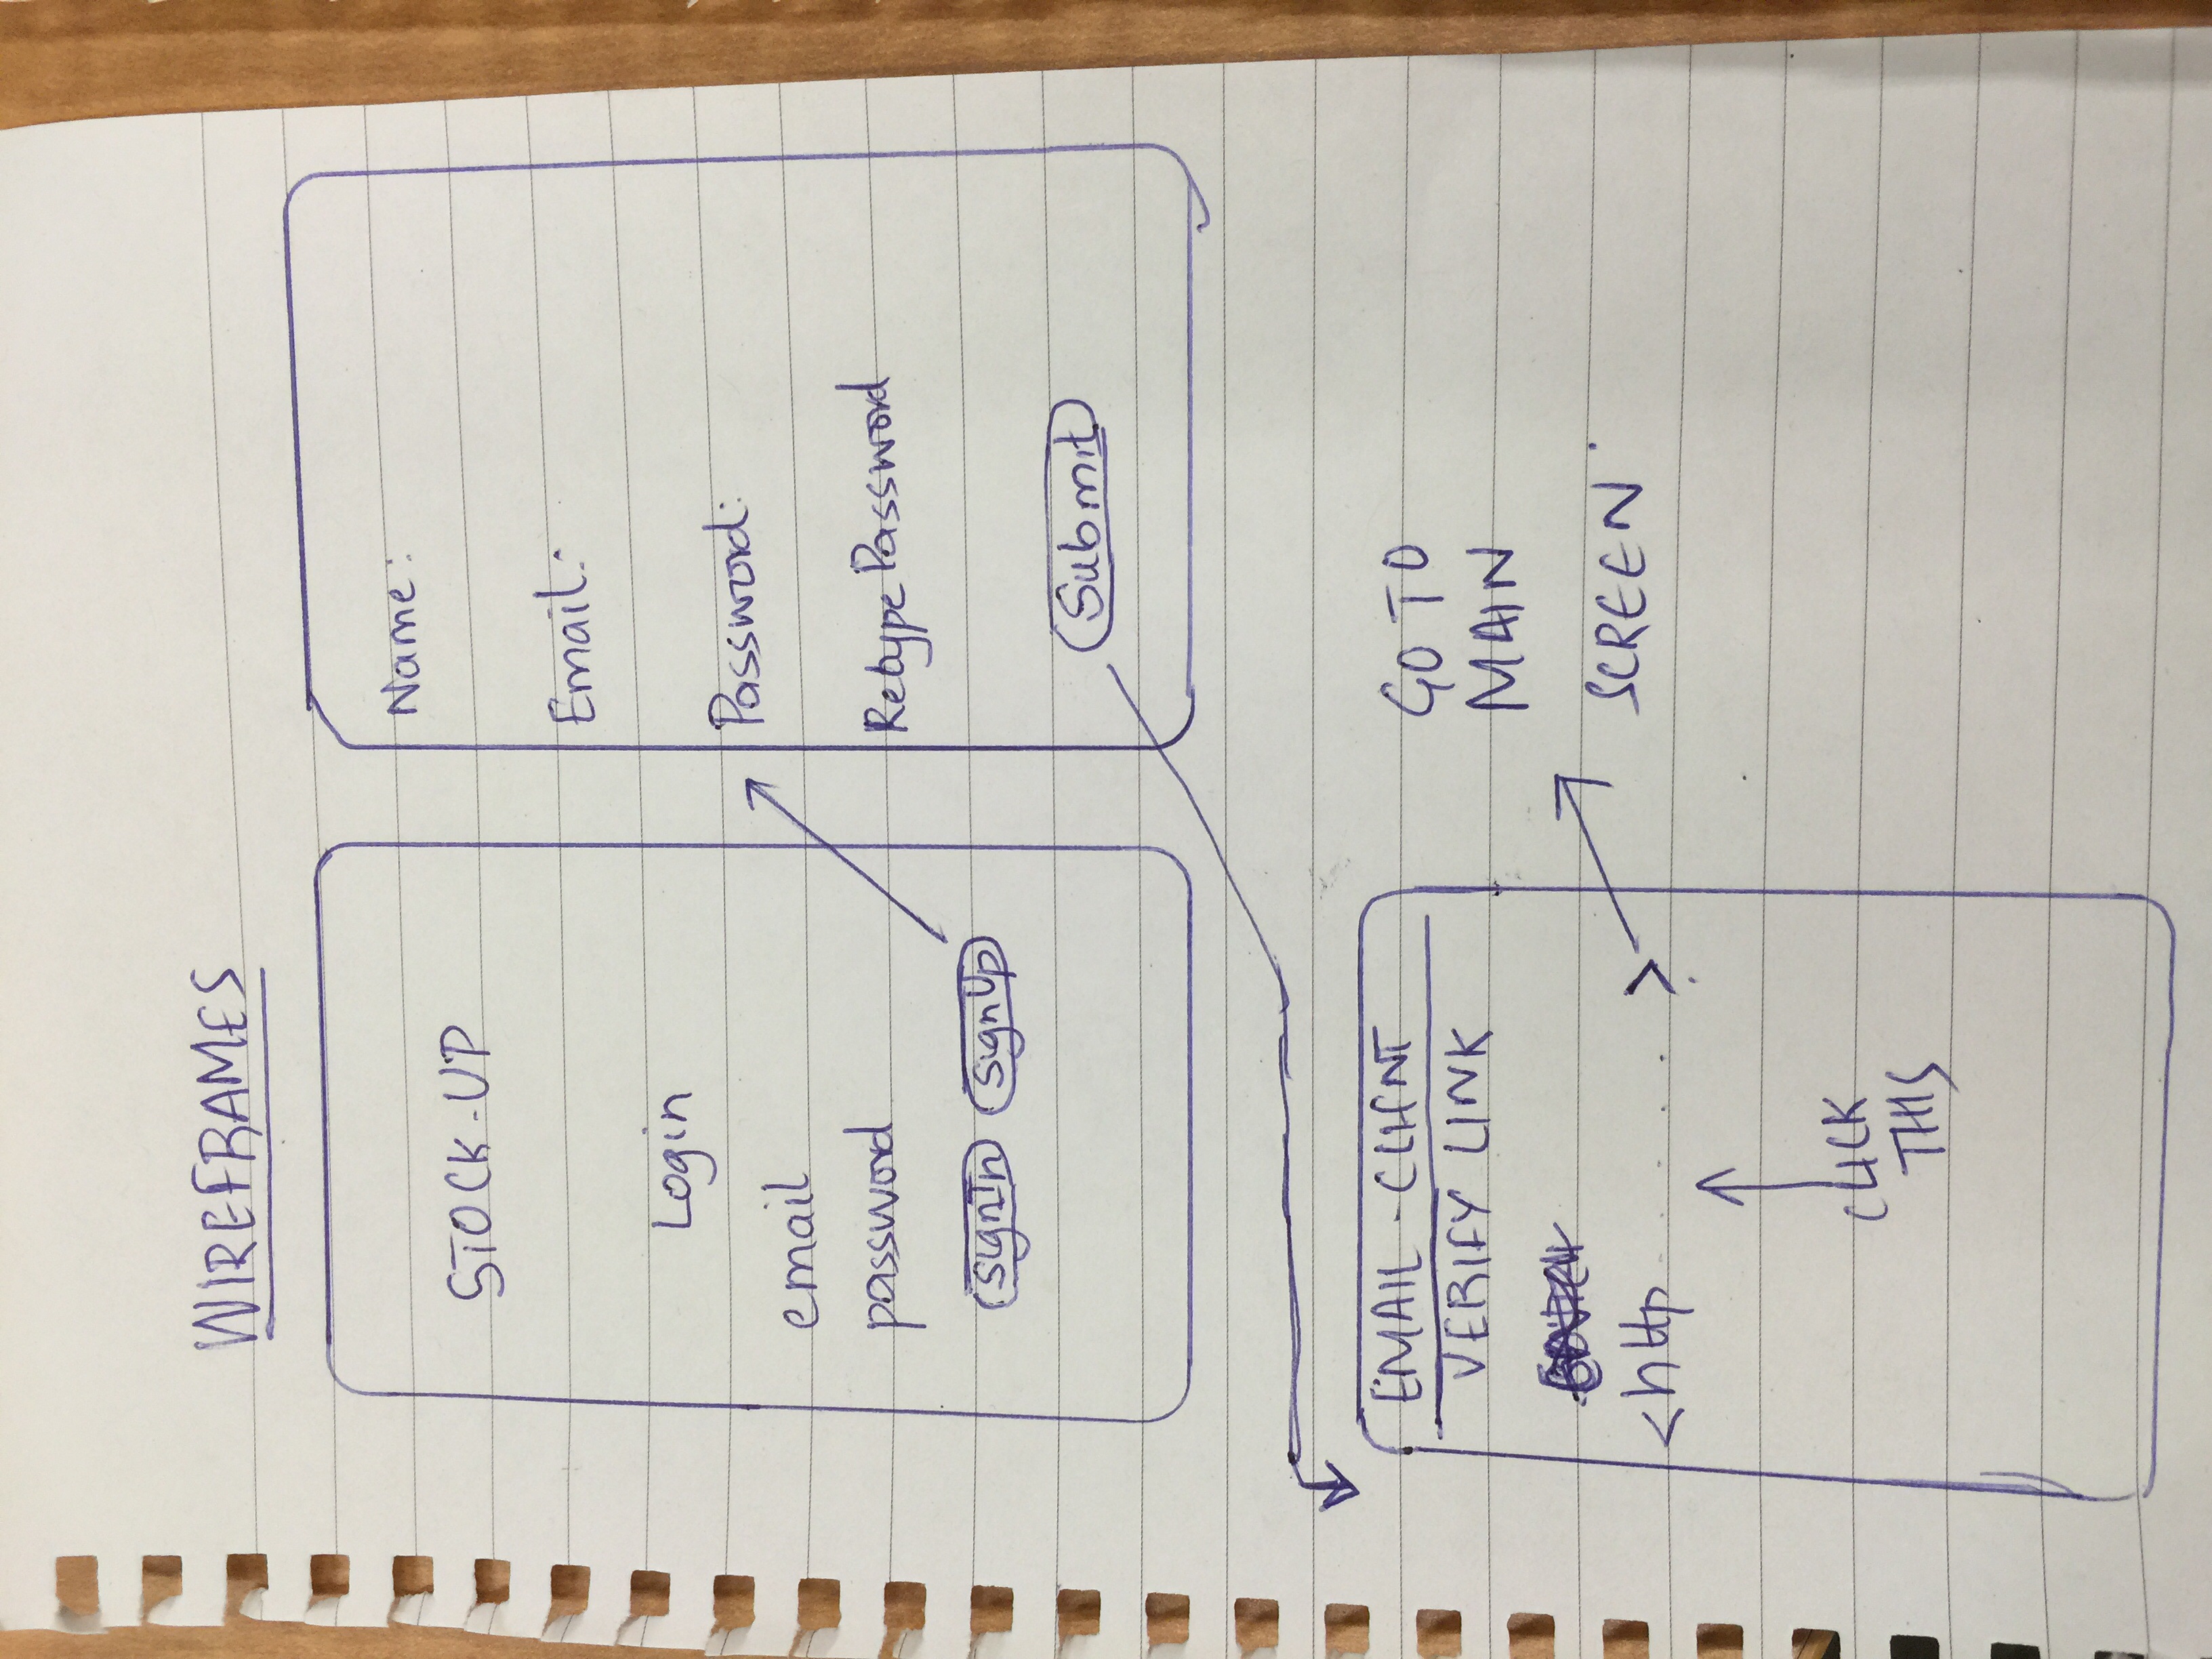 WIREFRAMES
STOCK-UP
Login
email
password
SignIn SignUp
Name:
Email:
Password:
Retype Password
Submit
EMAIL-CLIENT
VERIFY LINK
<http . . . . . >
CLICK
THIS
GO TO
MAIN
SCREEN